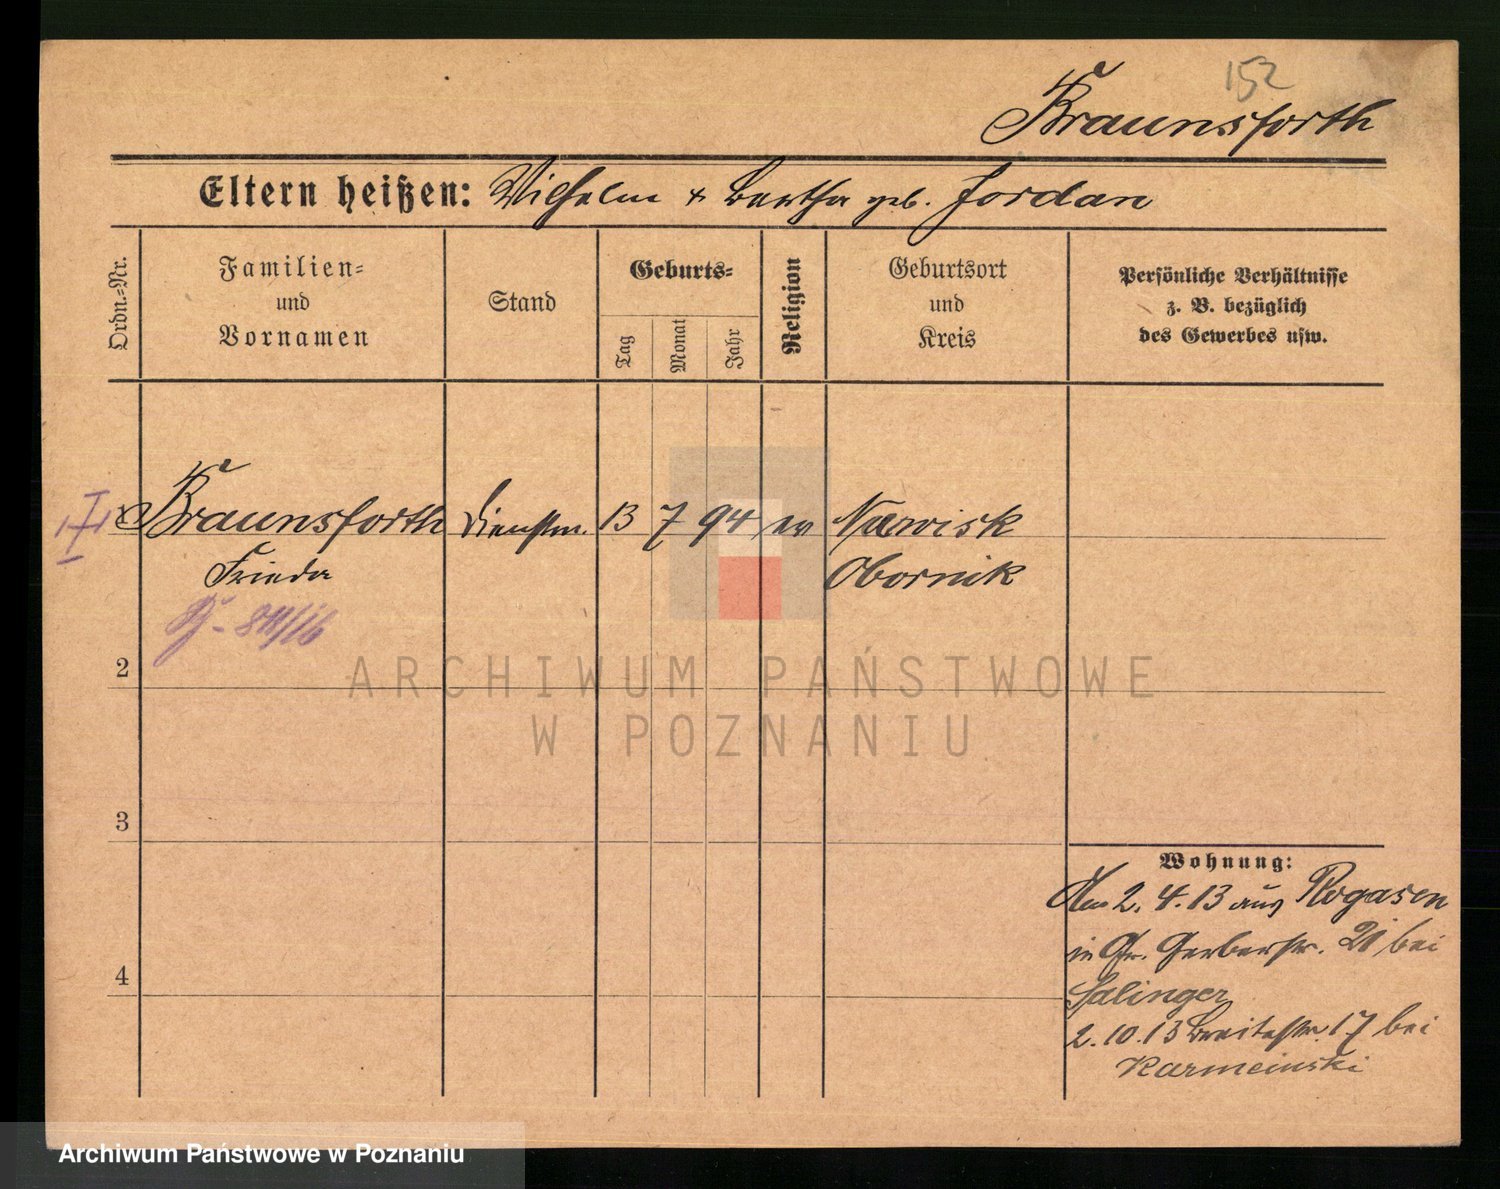 152
Braunsforth
Eltern heißen: Wilhelm + Bertha geb. Jordan
Ordn.-Nr.
Familien-
und
Vornamen
Stand
Geburts-
Tag
Monat
Jahr
Religion
Geburtsort
und
Kreis
Persönliche Verhältnisse
z. B. bezüglich
des Gewerbes usw.
1 Braunsforth Dienstm. 13 7 94 ev
Frieda Obornik
2
ARCHIWUM PAŃSTWOWE
W POZNANIU
3
4
Wohnung:
2. 4. 13 aus Rogasen
in Gr. Gerberstr. 21 bei
Salinger
2. 10. 13 Breitestr. 17 bei
Karmeinski
Archiwum Państwowe w Poznaniu